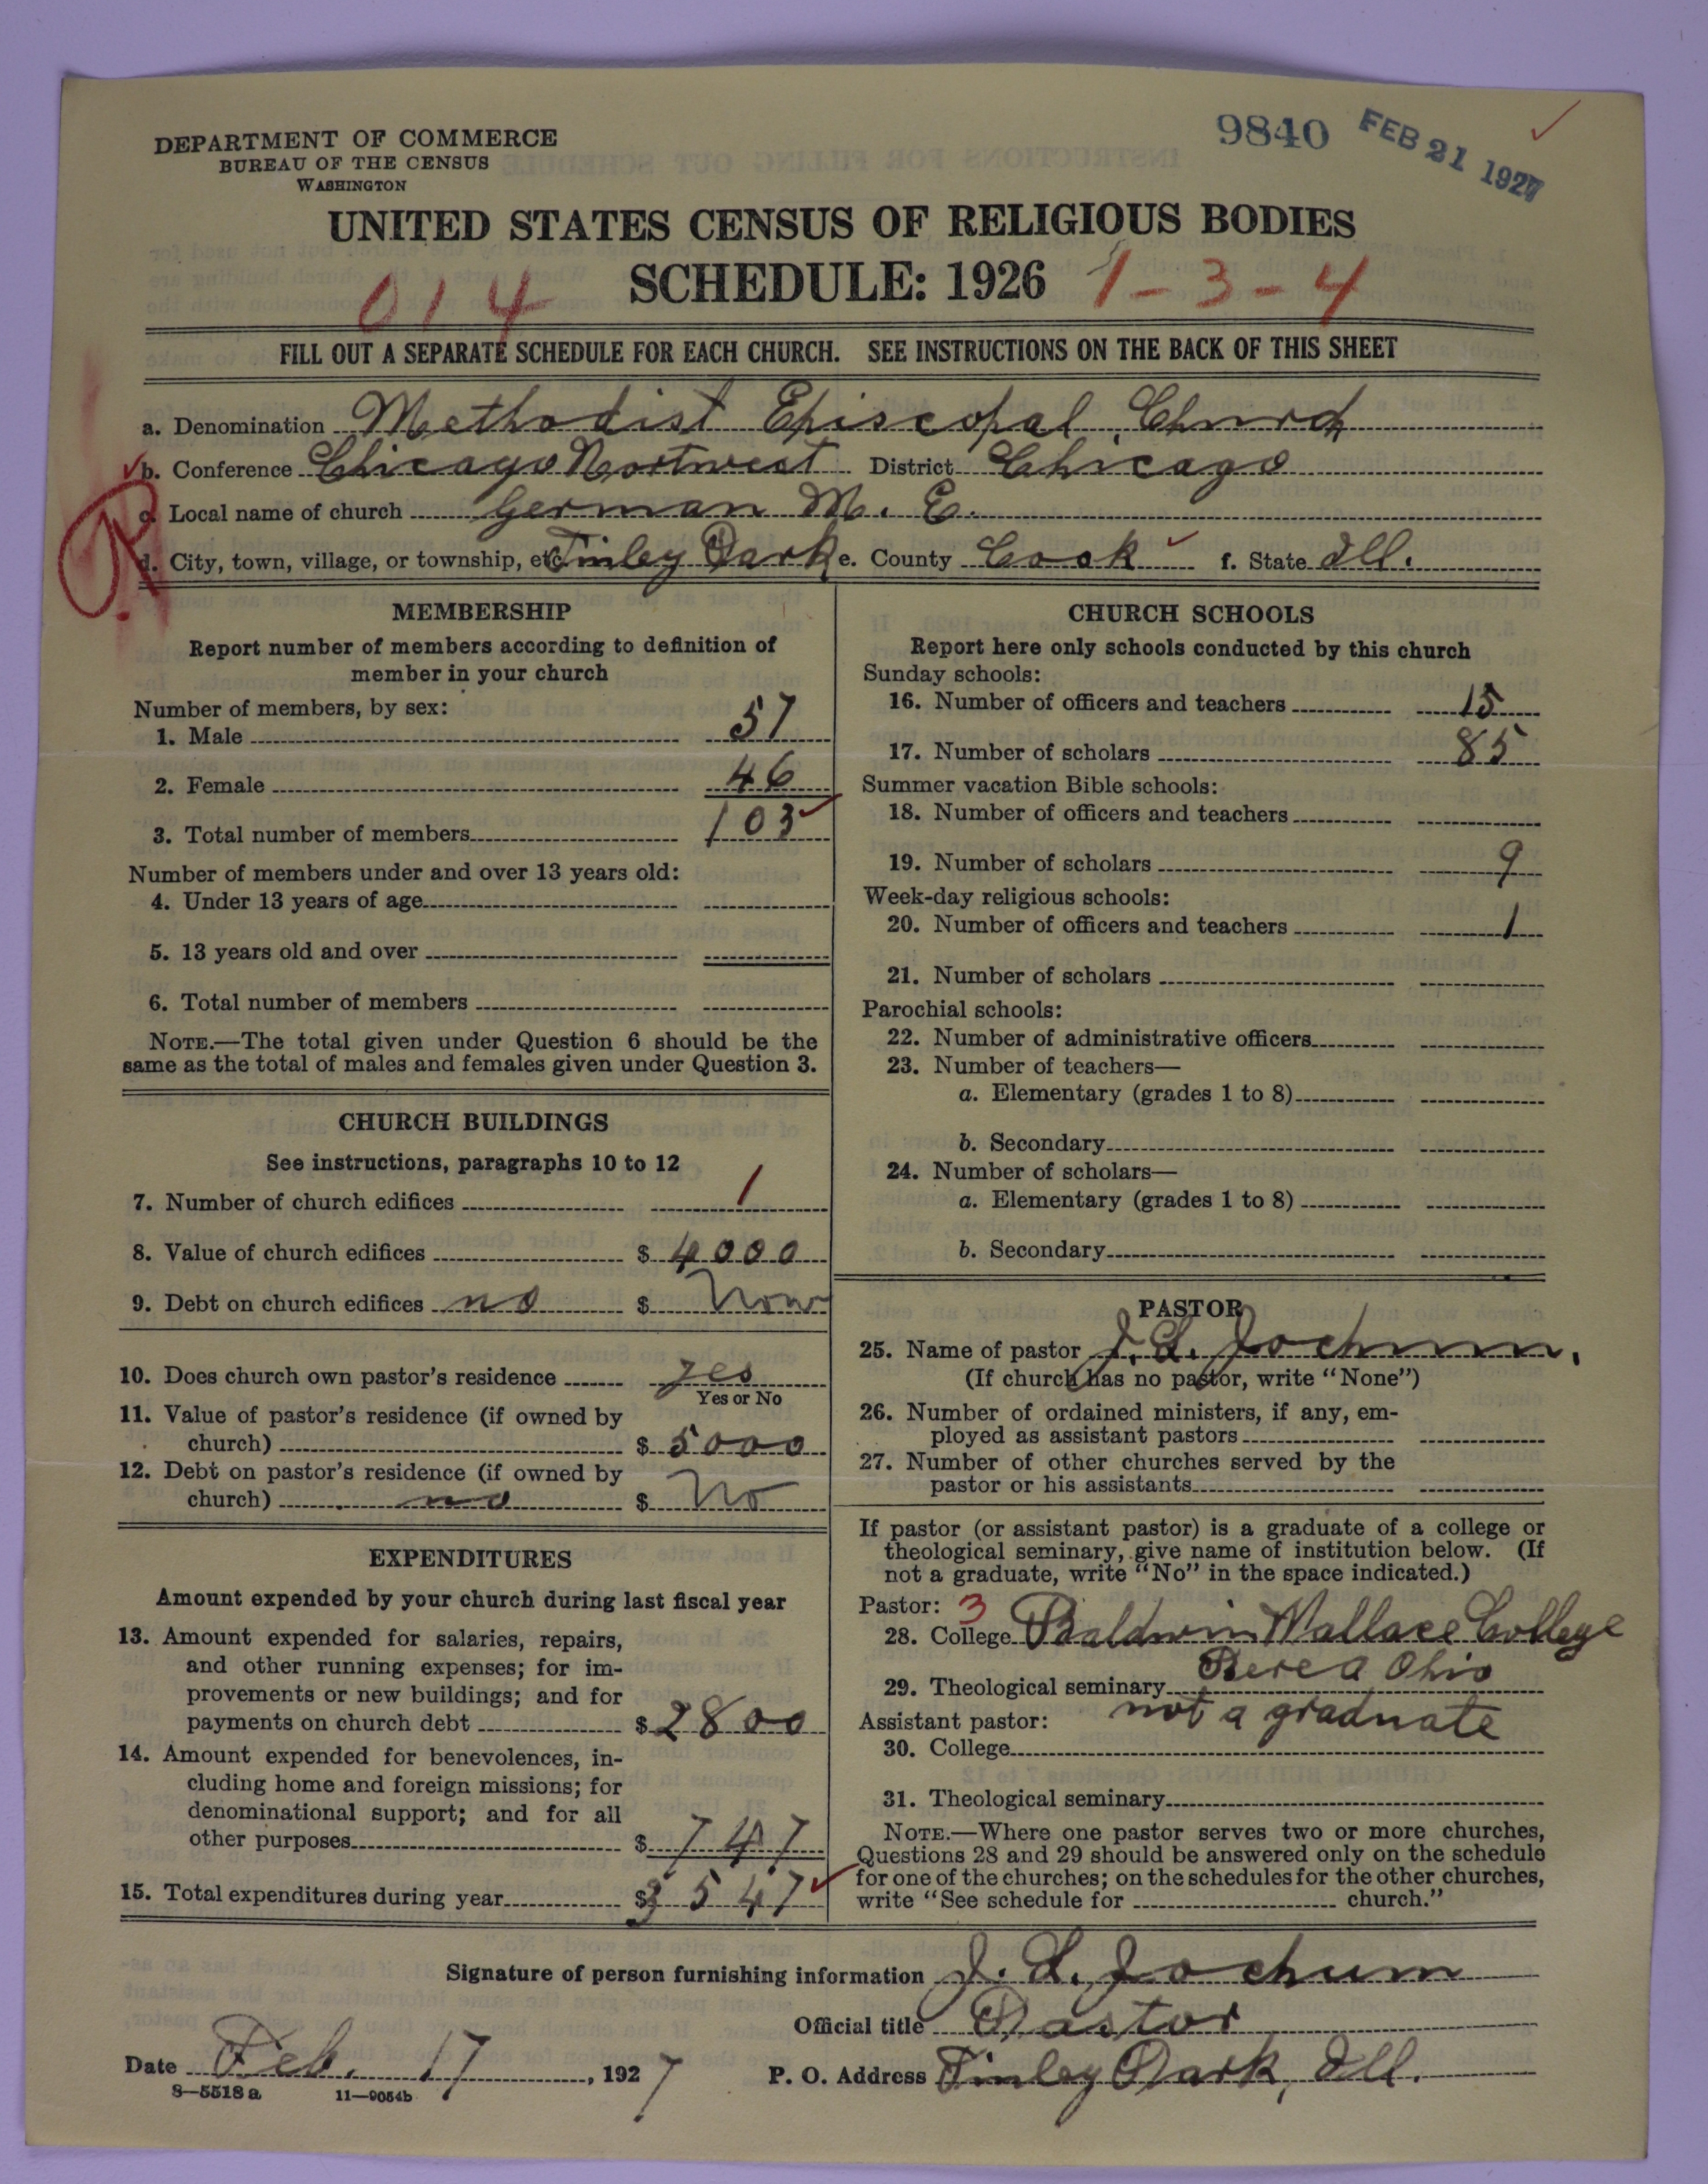 DEPARTMENT OF COMMERCE
BUREAU OF THE CENSUS
WASHINGTON
9840
FEB 21 1927
UNITED STATES CENSUS OF RELIGIOUS BODIES
SCHEDULE: 1926
014
1-3-4
FILL OUT A SEPARATE SCHEDULE FOR EACH CHURCH. SEE INSTRUCTIONS ON THE BACK OF THIS SHEET
a. Denomination Methodist Episcopal Church
b. Conference Chicago Nortwest District Chicago
c. Local name of church German M. E.
d. City, town, village, or township, etc. Tinley Park e. County Cook f. State Ill.
MEMBERSHIP
Report number of members according to definition of
member in your church
Number of members, by sex:
1. Male 57
2. Female 46
3. Total number of members 103
Number of members under and over 13 years old:
4. Under 13 years of age
5. 13 years old and over
6. Total number of members
NOTE.—The total given under Question 6 should be the
same as the total of males and females given under Question 3.
CHURCH BUILDINGS
See instructions, paragraphs 10 to 12
7. Number of church edifices 1
8. Value of church edifices $ 4000
9. Debt on church edifices no $
10. Does church own pastor's residence yes
Yes or No
11. Value of pastor's residence (if owned by
church) $ 5000
12. Debt on pastor's residence (if owned by
church) no $ No
EXPENDITURES
Amount expended by your church during last fiscal year
13. Amount expended for salaries, repairs,
and other running expenses; for im-
provements or new buildings; and for
payments on church debt $ 2800
14. Amount expended for benevolences, in-
cluding home and foreign missions; for
denominational support; and for all
other purposes $ 747
15. Total expenditures during year $ 3547
CHURCH SCHOOLS
Report here only schools conducted by this church
Sunday schools:
16. Number of officers and teachers 15
17. Number of scholars 85
Summer vacation Bible schools:
18. Number of officers and teachers
19. Number of scholars 9
Week-day religious schools:
20. Number of officers and teachers 1
21. Number of scholars
Parochial schools:
22. Number of administrative officers
23. Number of teachers—
a. Elementary (grades 1 to 8)
b. Secondary
24. Number of scholars—
a. Elementary (grades 1 to 8)
b. Secondary
PASTOR
25. Name of pastor J. L. Jochum.
(If church has no pastor, write "None")
26. Number of ordained ministers, if any, em-
ployed as assistant pastors
27. Number of other churches served by the
pastor or his assistants
If pastor (or assistant pastor) is a graduate of a college or
theological seminary, give name of institution below. (If
not a graduate, write "No" in the space indicated.)
Pastor: 3
28. College Baldwin Wallace College
Berea Ohio
29. Theological seminary
not a graduate
Assistant pastor:
30. College
31. Theological seminary
NOTE.—Where one pastor serves two or more churches,
Questions 28 and 29 should be answered only on the schedule
for one of the churches; on the schedules for the other churches,
write "See schedule for church."
Signature of person furnishing information J. L. Jochum
Official title Pastor
Date Feb. 17, 1927
P. O. Address Tinley Park, Ill.
8—5518 a 11—9054b